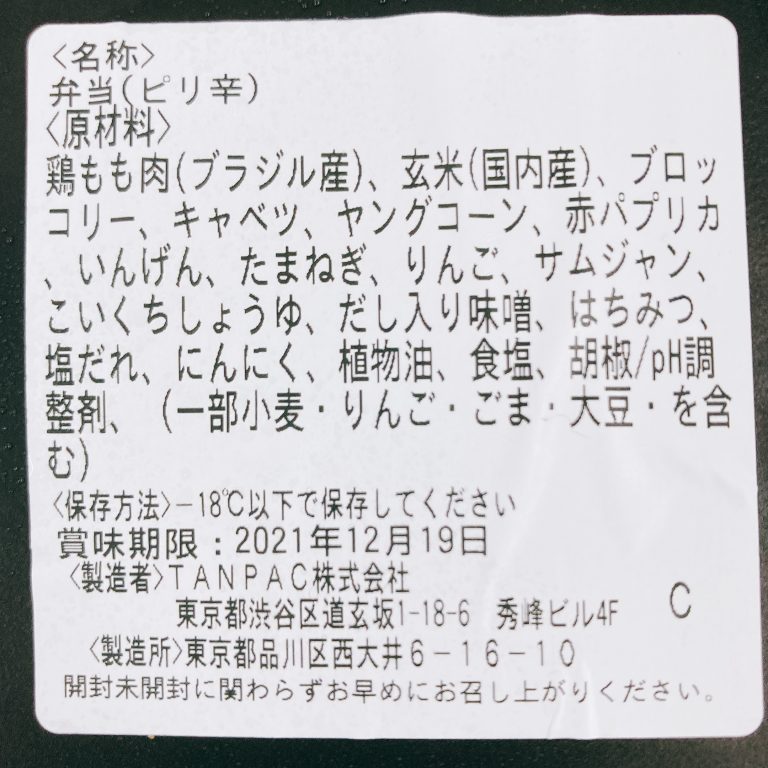 〈名称〉
弁当(ピリ辛)
〈原材料〉
鶏もも肉(ブラジル産)、玄米(国内産)、ブロッ
コリー、キャベツ、ヤングコーン、赤パプリカ
、いんげん、たまねぎ、りんご、サムジャン、
こいくちしょうゆ、だし入り味噌、はちみつ、
塩だれ、にんにく、植物油、食塩、胡椒/pH調
整剤、（一部小麦・りんご・ごま・大豆・を含
む)
〈保存方法〉−18℃以下で保存してください
賞味期限：2021年12月19日
〈製造者〉ＴＡＮＰＡＣ株式会社
東京都渋谷区道玄坂1-18-6　秀峰ビル4F
C
〈製造所〉東京都品川区西大井６－１６－１０
開封未開封に関わらずお早めにお召し上がりください。